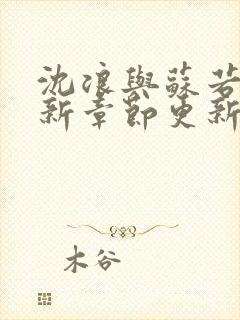 沈浪與蘇若
新章節更新
木谷